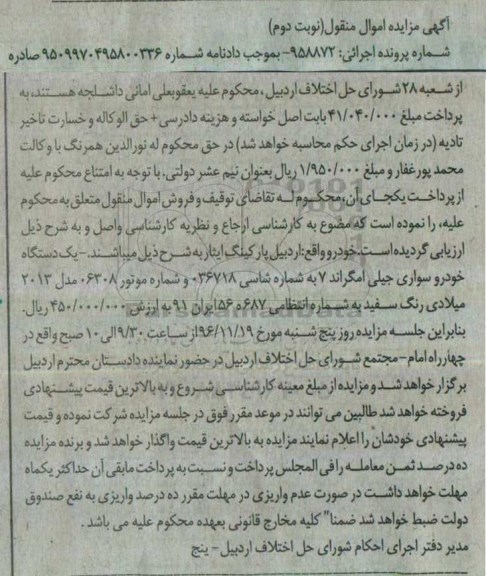 آگهی مزایده اموال منقول(نوبت دوم)
شماره پرونده اجرائی: ۹۵۸۸۷۲- بموجب دادنامه شماره ۹۵۰۹۹۷۰۴۹۵۸۰۰۳۳۶ صادره
از شعبه ۲۸ شورای حل اختلاف اردبیل، محکوم علیه یعقوبعلی امانی داشلجه هستند، به
پرداخت مبلغ ۴۱/۰۴۰/۰۰۰ بابت اصل خواسته و هزینه دادرسی+ حق الوکاله و خسارت تاخیر
تادیه (در زمان اجرای حکم محاسبه خواهد شد) در حق محکوم له نورالدین همرنگ با وکالت
محمد پورغفار و مبلغ ۱/۹۵۰/۰۰۰ ریال بعنوان نیم عشر دولتی، با توجه به امتناع محکوم علیه
از پرداخت یکجای آن، محکوم له تقاضای توقیف و فروش اموال منقول متعلق به محکوم
علیه، را نموده است که مضوع به کارشناسی ارجاع و نظریه کارشناسی واصل و به شرح ذیل
ارزیابی گردیده است. خودرو واقع: اردبیل پارکینگ ایثار به شرح ذیل میباشند. - یک دستگاه
خودرو سواری جیلی امگراند ۷ به شماره شاسی ۰۳۶۷۱۸ و شماره موتور ۰۶۳۰۸ مدل ۲۰۱۳
میلادی رنگ سفید به شماره انتظامی ۶۸۷ه۵۶ ایران ۹۱ به ارزش ۴۵۰/۰۰۰/۰۰۰ ریال.
بنابراین جلسه مزایده روز پنج شنبه مورخ ۹۶/۱۱/۱۹ از ساعت ۹/۳۰ الی ۱۰ صبح واقع در
چهارراه امام- مجتمع شورای حل اختلاف اردبیل در حضور نماینده دادستان محترم اردبیل
برگزار خواهد شد و مزایده از مبلغ معینه کارشناسی شروع و به بالاترین قیمت پیشنهادی
فروخته خواهد شد طالبین می توانند در موعد مقرر فوق در جلسه مزایده شرکت نموده و قیمت
پیشنهادی خودشان را اعلام نمایند مزایده به بالاترین قیمت واگذار خواهد شد و برنده مزایده
ده درصد ثمن معامله را فی المجلس پرداخت و نسبت به پرداخت مابقی آن حداکثر یکماه
مهلت خواهد داشت در صورت عدم واریزی در مهلت مقرر ده درصد واریزی به نفع صندوق
دولت ضبط خواهد شد ضمنا" کلیه مخارج قانونی بعهده محکوم علیه می باشد.
مدیر دفتر اجرای احکام شورای حل اختلاف اردبیل- پنج